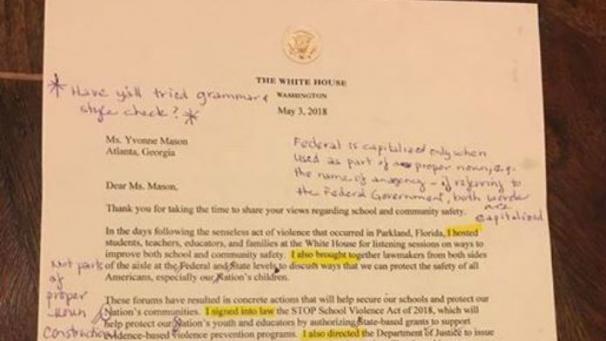 THE WHITE HOUSE
WASHINGTON
May 3, 2018
* Have y'all tried grammar &
style check? *
Ms. Yvonne Mason
Atlanta, Georgia
Federal is capitalized only when
used as part of a proper noun, e.g.
the name of an agency - if referring to
the Federal Government, both words
are
capitalized
Dear Ms. Mason,
Thank you for taking the time to share your views regarding school and community safety.
In the days following the senseless act of violence that occurred in Parkland, Florida, I hosted
students, teachers, educators, and families at the White House for listening sessions on ways to
improve both school and community safety. I also brought together lawmakers from both sides
of the aisle at the Federal and State levels to discuss ways that we can protect the safety of all
Americans, especially our Nation's children.
Not part
of
proper
noun
Construction
These forums have resulted in concrete actions that will help secure our schools and protect our
Nation's communities. I signed into law the STOP School Violence Act of 2018, which will
help protect our Nation's youth and educators by authorizing State-based grants to support
evidence-based violence prevention programs. I also directed the Department of Justice to issue